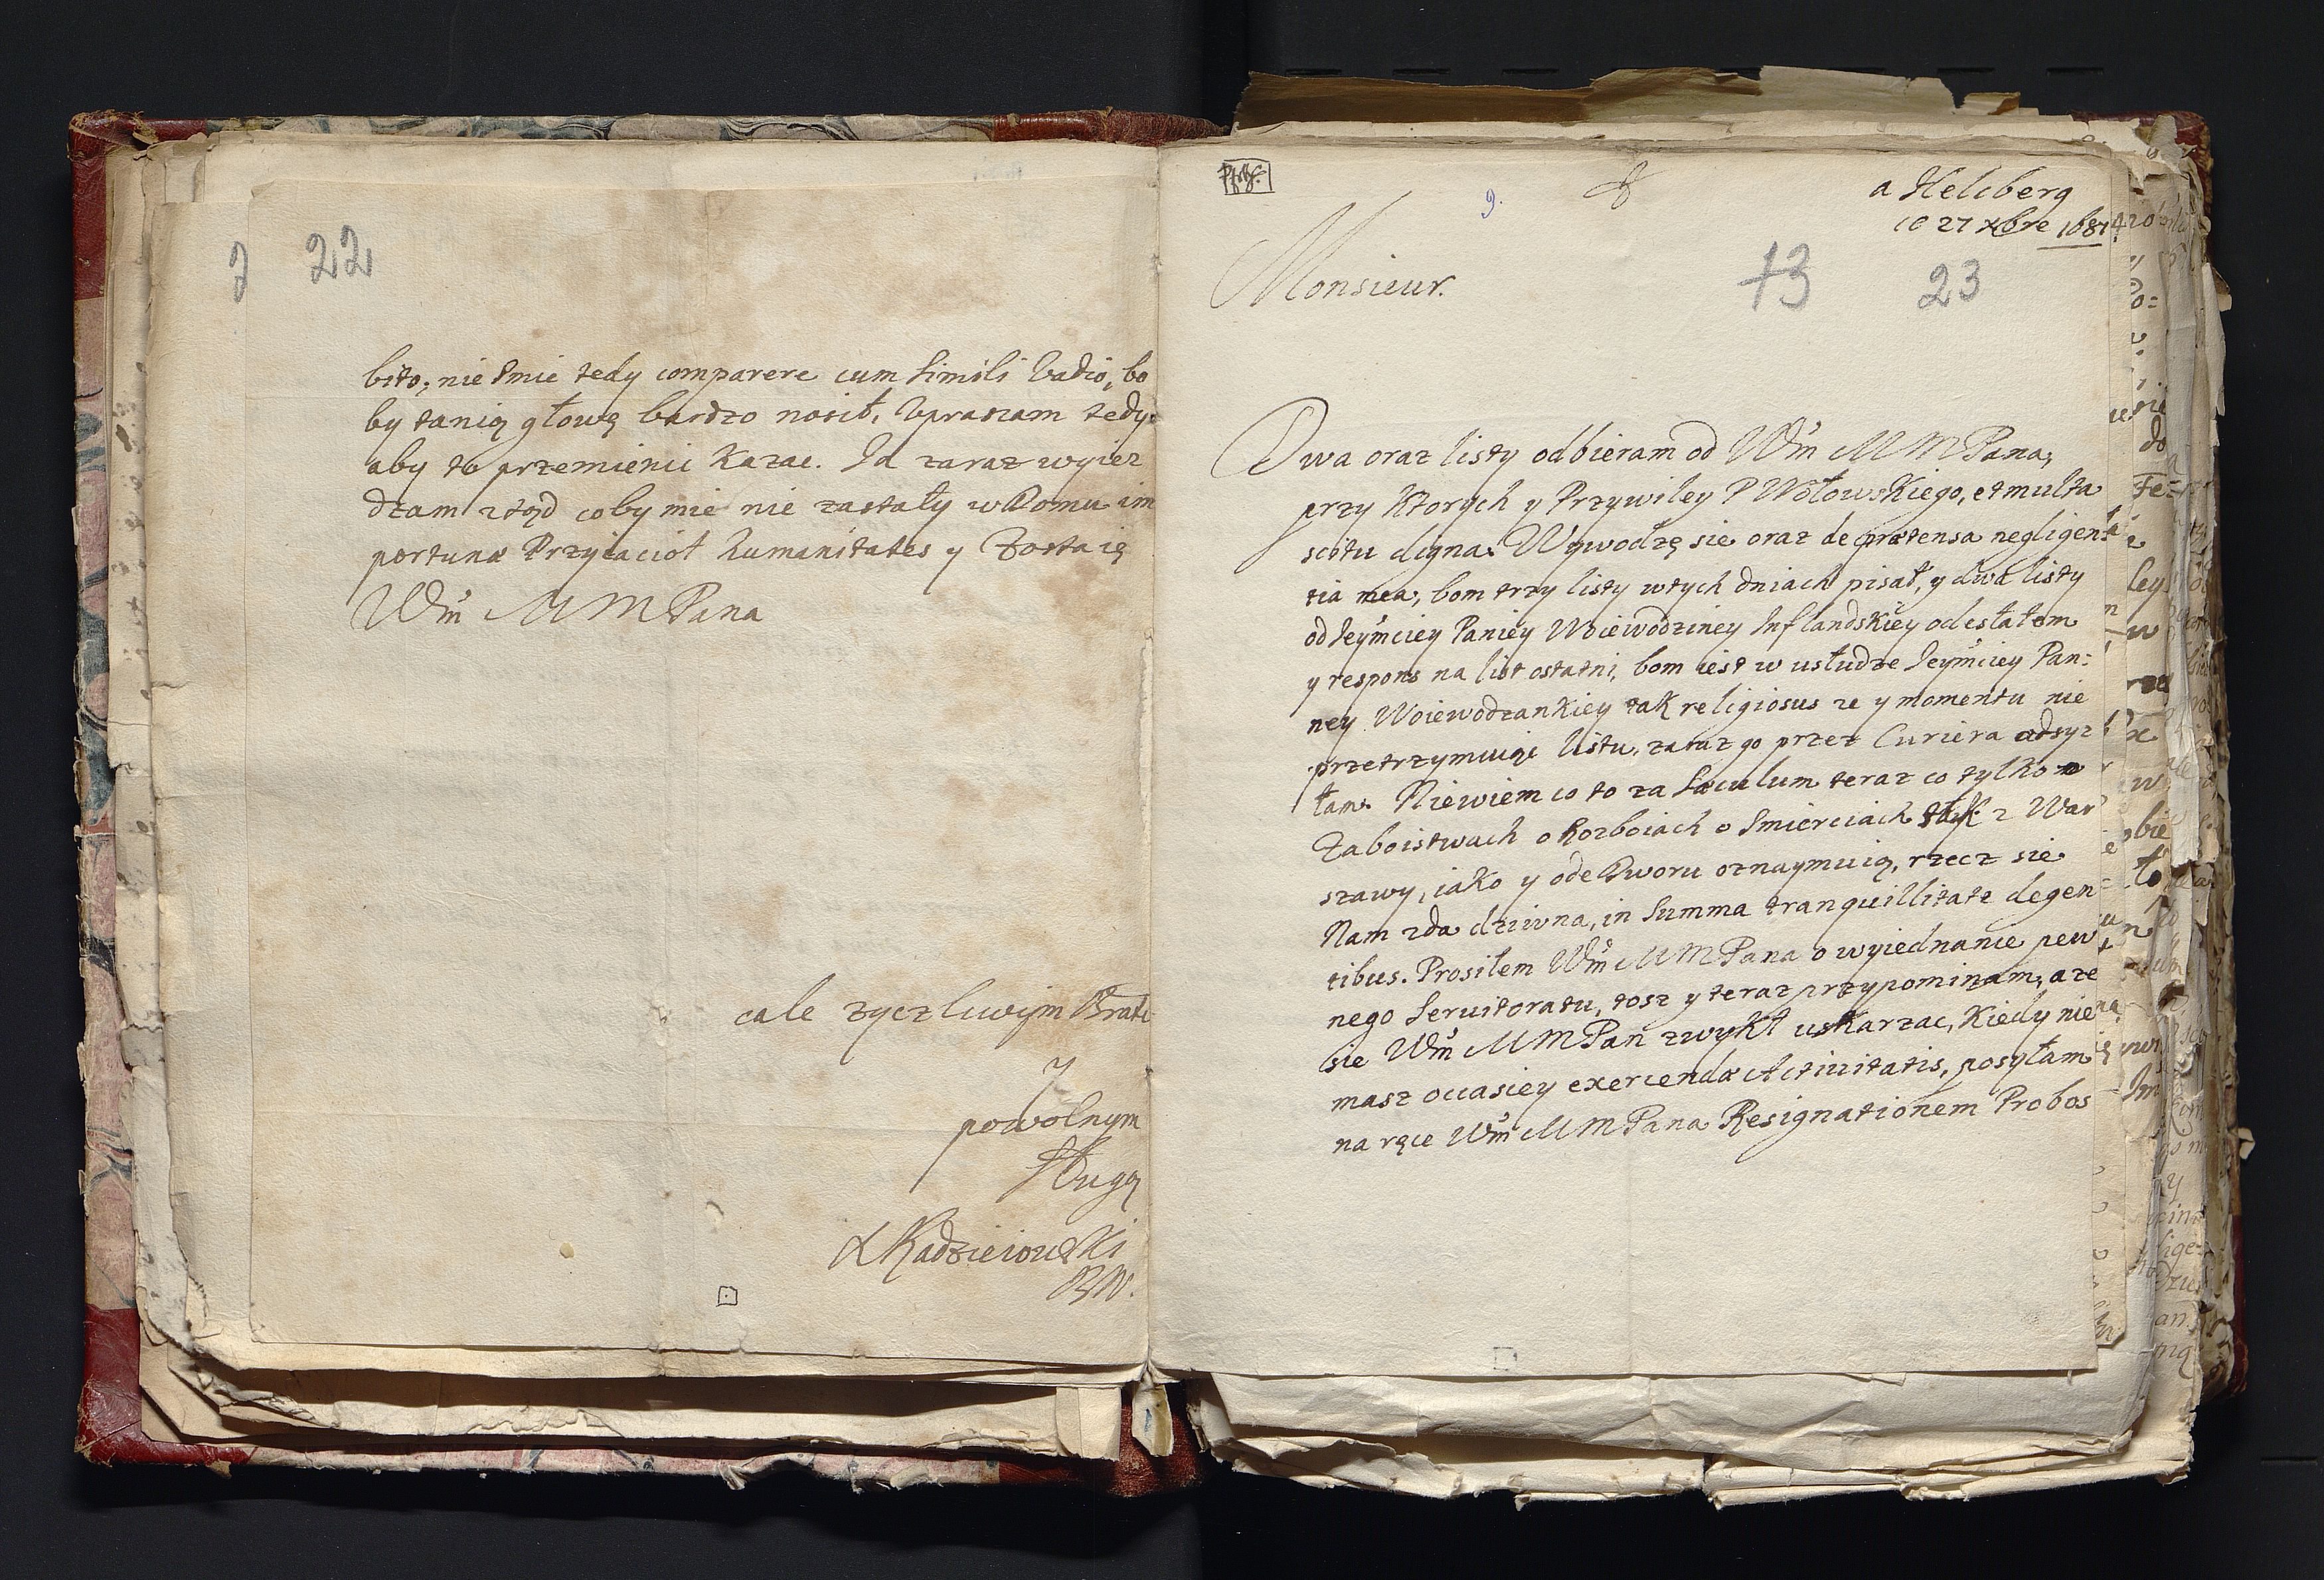 22
bito; nie smie tedy comparere cum simili Vadio, bo
by tanią głowę bardzo nosił, Upraszam tedy
aby to przemienic kazac. Ja zaraz wyiez
dzam ztąd coby mie nie zastały w Domu im
portunæ Przyiacioł humanitates y Zostaię
Wm̃ M M Pana
cale zyczliwym Brate
y
powolnym
Sługą
Radzieiowski
BW.
9.
a Helsberg
27 Xbre 1681
13 23
Monsieur.
Dwa oraz listy odbieram od Wm̃ M M Pana,
przy ktorych y Przywiley P Wołowskiego, et multa
scitu digna. Wywodzę sie oraz de prætensa negligen
tia mea, bom trzy listy w tych dniach pisał, y dwa listy
od Jeym̃ciey Paniey Woiewodziney Inflandskiey odesłałem
y respons na list ostatni, bom iest w usłudze Jeym̃ciey Pan:
ney Woiewodzankiey tak religiosus ze y momentu nie
przetrzymuię listu, zaraz go przez Curiera odsyz
łam. Niewiem co to za sæculum teraz co tylko o
Zaboistwach o Rozboiach o Smierciach tak z War
szawy, iako y ode Dworu oznaymuią, rzecz sie
Nam zda dziwna, in summa tranquillitate degen
tibus. Prosilem Wm̃ M M Pana o wyiednanie pew
nego Servitoratu, tosz y teraz przypominam, a ze
sie Wm̃ M M Pan zwykł uskarzac, kiedy nie
masz occasiey exercendæ Activitatis, posyłam
na ręce Wm̃ M M Pana Resignationem Probos